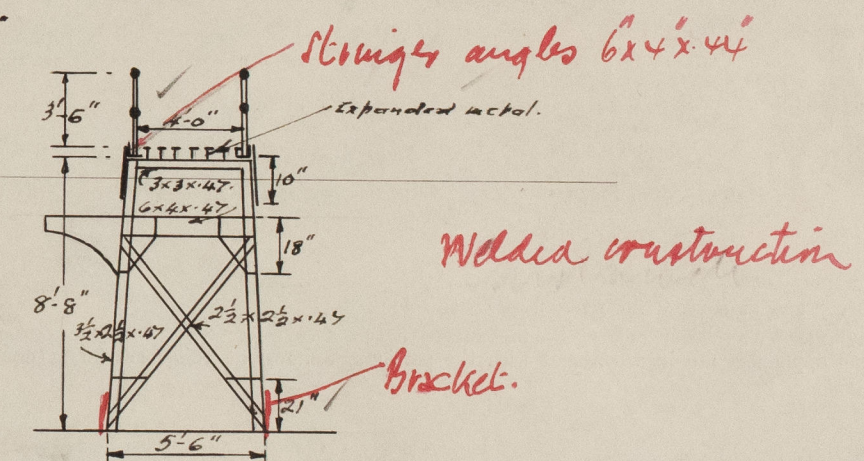 Stringer angles 6"x4"x.44"
3'-6"
4'-0"
Expanded metal.
3x3x.47.
10"
6x4x.47
18"
Welded construction
8'-8"
3½x2½x.47
2½x2½x.47
Bracket.
21"
5'-6"